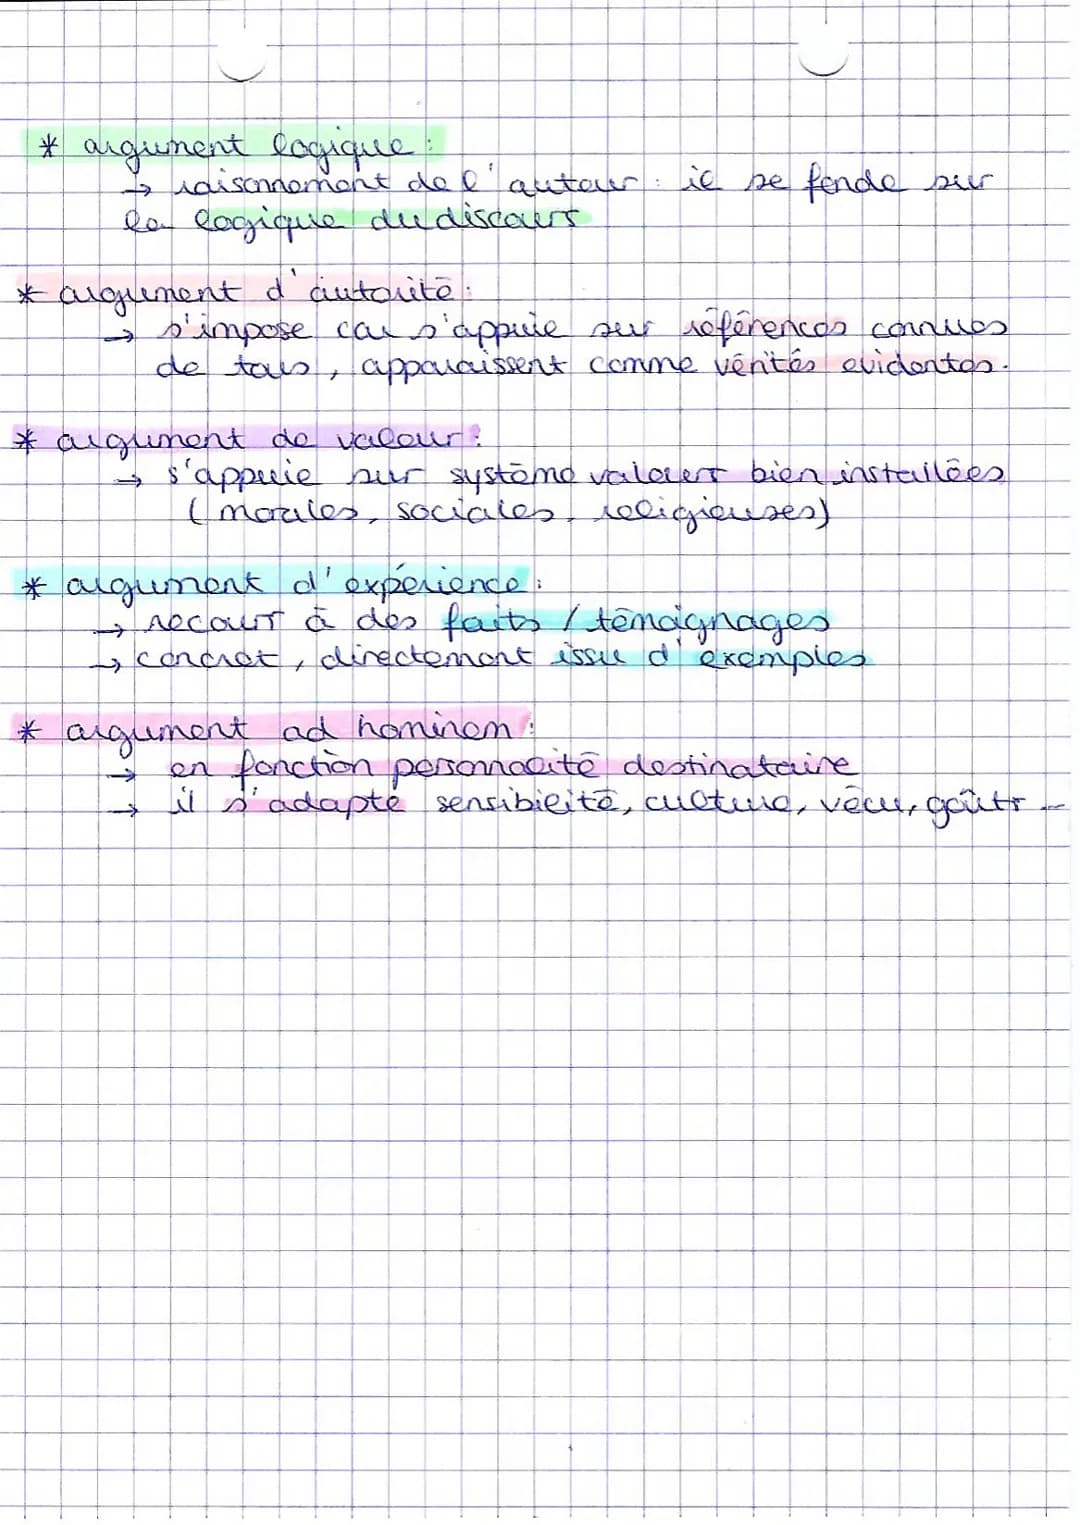 * argument logique :
→ raisonnement de l'auteur : il se fonde sur
la logique du discours
* argument d'autorité :
→ s'impose car s'appuie sur références connues
de tous, apparaissent comme vérités evidentes.
* argument de valeur :
→ s'appuie sur système valeurs bien installées
(morales, sociales, religieuses)
* argument d'expérience :
→ recours à des faits / témoignages
→ concret, directement issu d'exemples
* argument ad hominem :
→ en fonction personnalité destinataire
→ il s'adapte sensibilité, culture, vécu, goûts ...